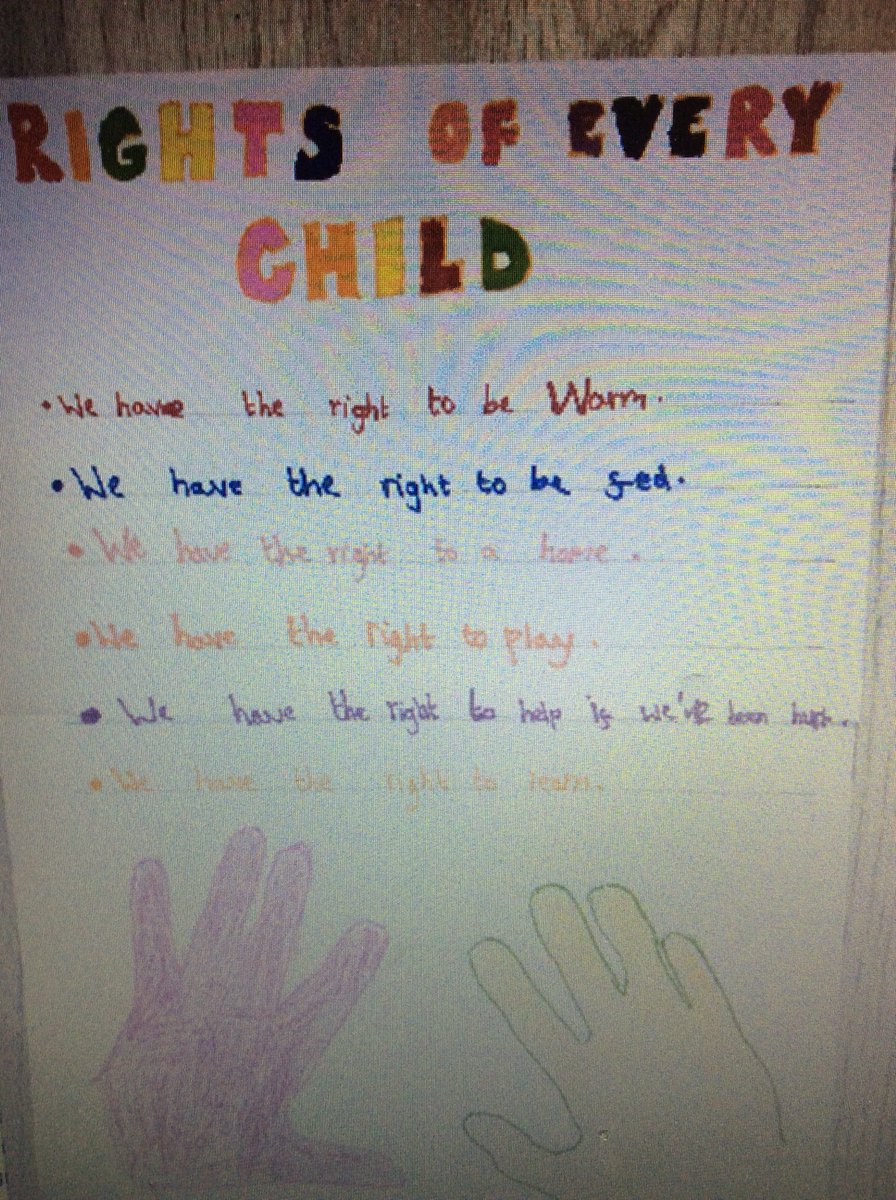 RIGHTS OF EVERY
CHILD
• We have the right to be Warm.
• We have the right to be fed.
• We have the right to a home.
• We have the right to play.
• We have the right to help if we've been hurt.
• We have the right to learn.